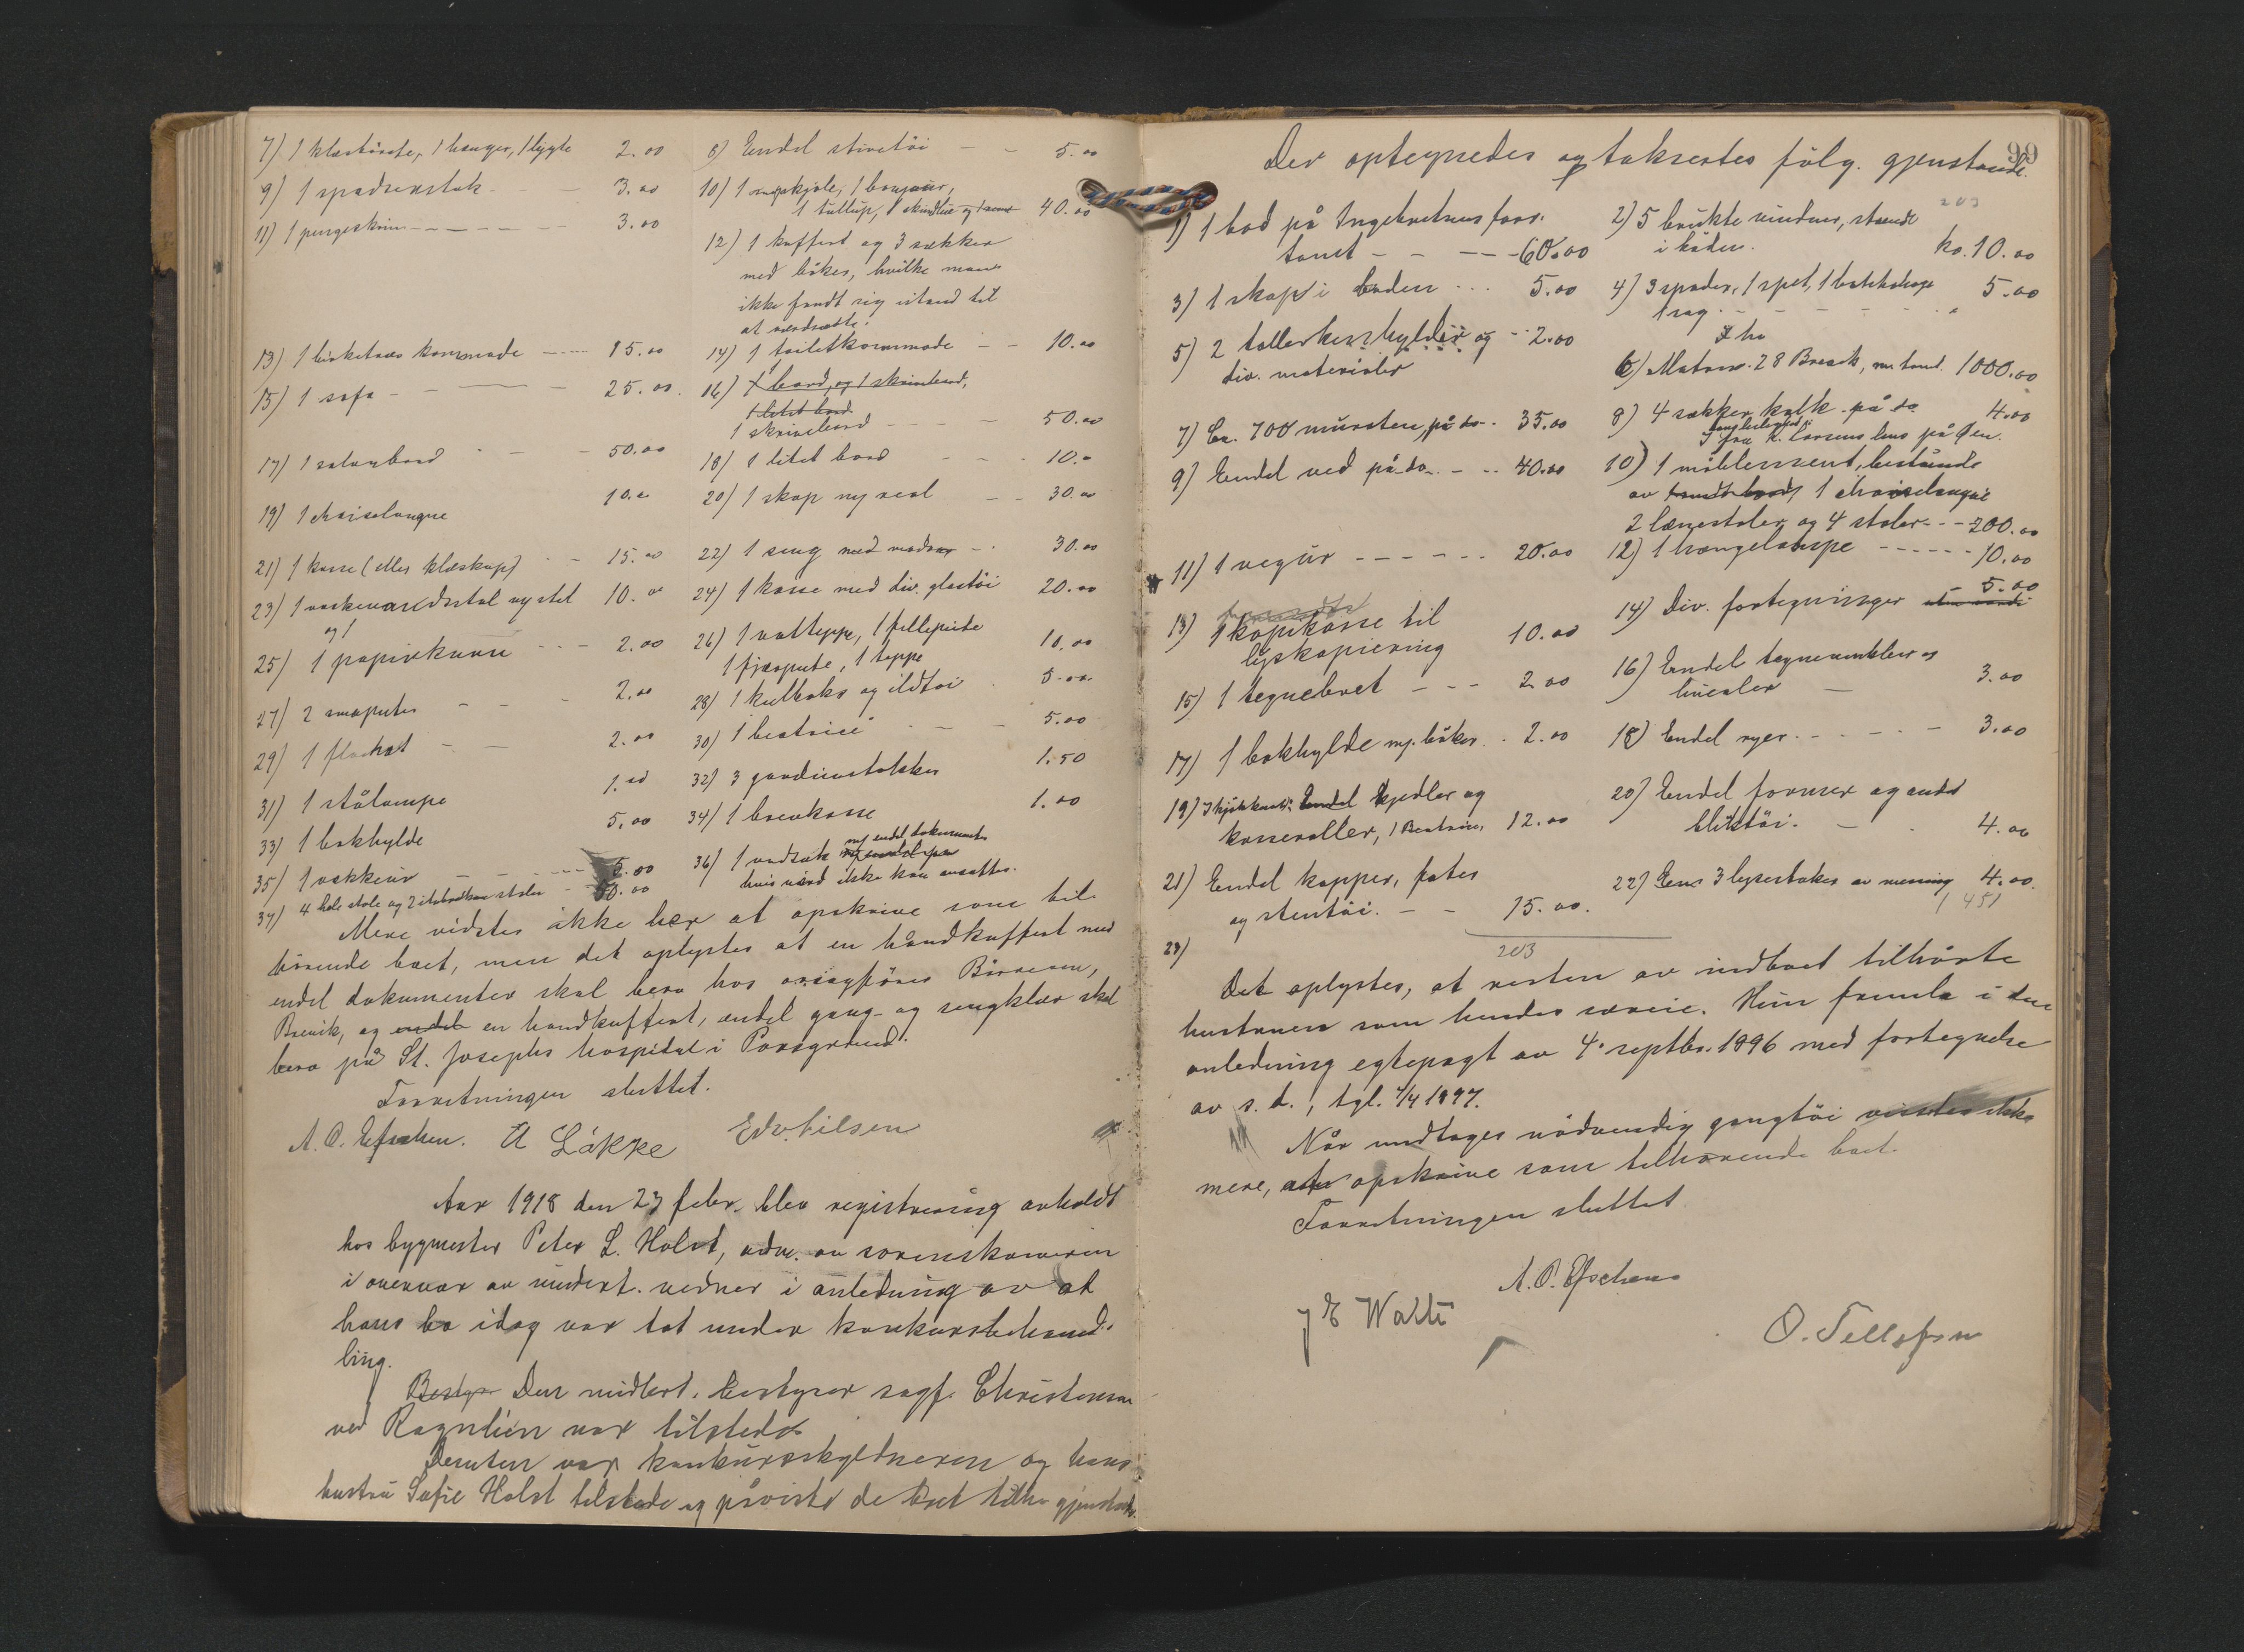 7) 1 klæsbörste, 1 hænger, 1 lygte 2.00
8) Endel stivetöi - - 5.00
9) 1 spadserstok - - 3.00
10) 1 snipkjole, 1 bonjour,
1 tullup, 40.00
11) 1 pengeskrin - - - 3.00
12) 1 kuffert og 3 sækker
med böker, hvilke man
ikke fandt sig istand til
at værdsætte.
13) 1 birketræs kommode - - 15.00
14) 1 toiletkommode - - 10.00
15) 1 sofa - - - 25.00
16) 1 bord, og 1 skrivebord,
1 litet bord
1 skrivebord - - - 50.00
17) 1 salonbord - - - 50.00
18) 1 litet bord - - - 10.-
19) 1 chaiselongue 10.00
20) 1 skap ny reol - - 30.00
21) 1 kasse (eller klæskap) - - 15.00
22) 1 seng med madras - - 30.00
23) 1 10.00
24) 1 kasse med div. glastöi 20.00
og 1
25) 1 papirkurv - - - 2.00
26) 1 vatteppe, 1 fillepute
1 fjærpute, 1 teppe 10.00
27) 2 småputer - - - 2.00
28) 1 kulboks og ildtöi 5.00
29) 1 floshat - - 2.00
30) 1 beatrice - - - 5.00
31) 1 stålampe 1.00
32) 3 gardinstokker 1.50
33) 1 bokhylde 5.00
34) 1 brevkasse 1.00
35) 1 vækkeur - - - 5.00
36) 1 vadsæk m/ endel dokumenter
hvis værd ikke kan ansættes.
37) 4 hele stole og 2 stoler - 50.00
Mere vidstes ikke her at opskrive som til-
hörende boet, men det oplystes at en håndkuffert med
endel dokumenter skal bero hos orsagförer Börresen,
Brevik, og endel en handkuffert, endel gang- og sengklær skal
bero på St. Josephs hospital i Porsgrund.
Forretningen sluttet.
A. O. Efschen. A Låkke Edv. Nilsen
Aar 1918 den 23 febr. blev registrering avholdt
hos bygmester Peter L. Holst, adm. av sorenskriveren
i overvær av undert. vidner i anledning av at
hans bo idag var tat under konkursbehand-
ling.
Bestyr Den midlert. bestyrer sagf. Christensen
ved Ragnlien var tilstede
Desuten var konkursskyldneren og hans
hustru Sofie Holst tilstede og påviste de boet tilhr. gjenstande.
99
Der optegnedes og taksertes fölg. gjenstande.
203
1) 1 bod på Ingebretsens forr.
tomt - - - - 60.00
2) 5 brukte vinduer, stående
i boden. kr. 10.00
3) 1 skap i boden - - - 5.00
4) 3 spader, 1 spet, 1
1 sag - - - - 5.00
5) 2 tallerkenhylder og - - 2.00
div. materialer
6) Matrnr. 28 Brevik, 1000.00
7) Ca. 700 mursten, på do - 35.00
8) 4 sækker kalk på do 4.00
9) Endel ved på do - - - 40.00
I fru K. Larsens hus på Öen.
10) 1 möblement, bestående
av 1 chaiselongue
2 lænestoler og 4 stoler - - - 200.00
11) 1 vægur - - - - - 20.00
12) 1 hængelampe - - - - - 10.00
13) 1 kopikasse til
lyskopiering 10.00
14) Div. fortegninger uten værdi 5.00
15) 1 tegnebret - - - 2.00
16) Endel tegnevinkler og
linealer - 3.00
17) 1 bokhylde m. böker - - 2.00
18) Endel ryer - - - - - 3.00
19) I kjökkenet: Endel kjedler og
kasseroller, 1 Beatrice, 12.00
20) Endel former og andet
bliktöi. - - 4.00
21) Endel kopper, fater
og stentöi. - - 15.00.
22) 3 lysestaker av messing 4.00.
1451
203
23)
Det oplystes, at resten av indboet tilhörte
hustruen som hendes særeie. Hun fremla i den
anledning egtepagt av 4. septbr. 1896 med fortegnelse
av s. d., tgl. 7/4 1897.
Når undtages nödvendig gangtöi vistes ikke
mere, at opskrive som tilhörende boet.
Forretningen sluttet
A. O. Efschen
J E Walte
O. Tellefsen